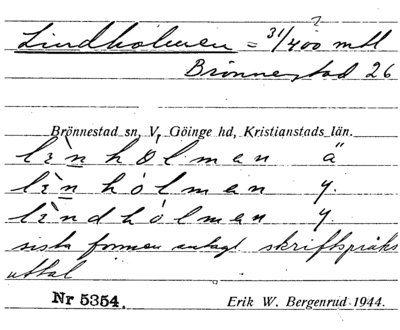 Lindholmen = 31/400 mtl
Brönnestad 26
Brönnestad sn, V. Göinge hd, Kristianstads län.
lìn hòlmen ä
lìn hólmen y.
lìndhólmen y
sista formen antagl skriftspråks
uttal
Nr 5354. Erik W. Bergenrud 1944.